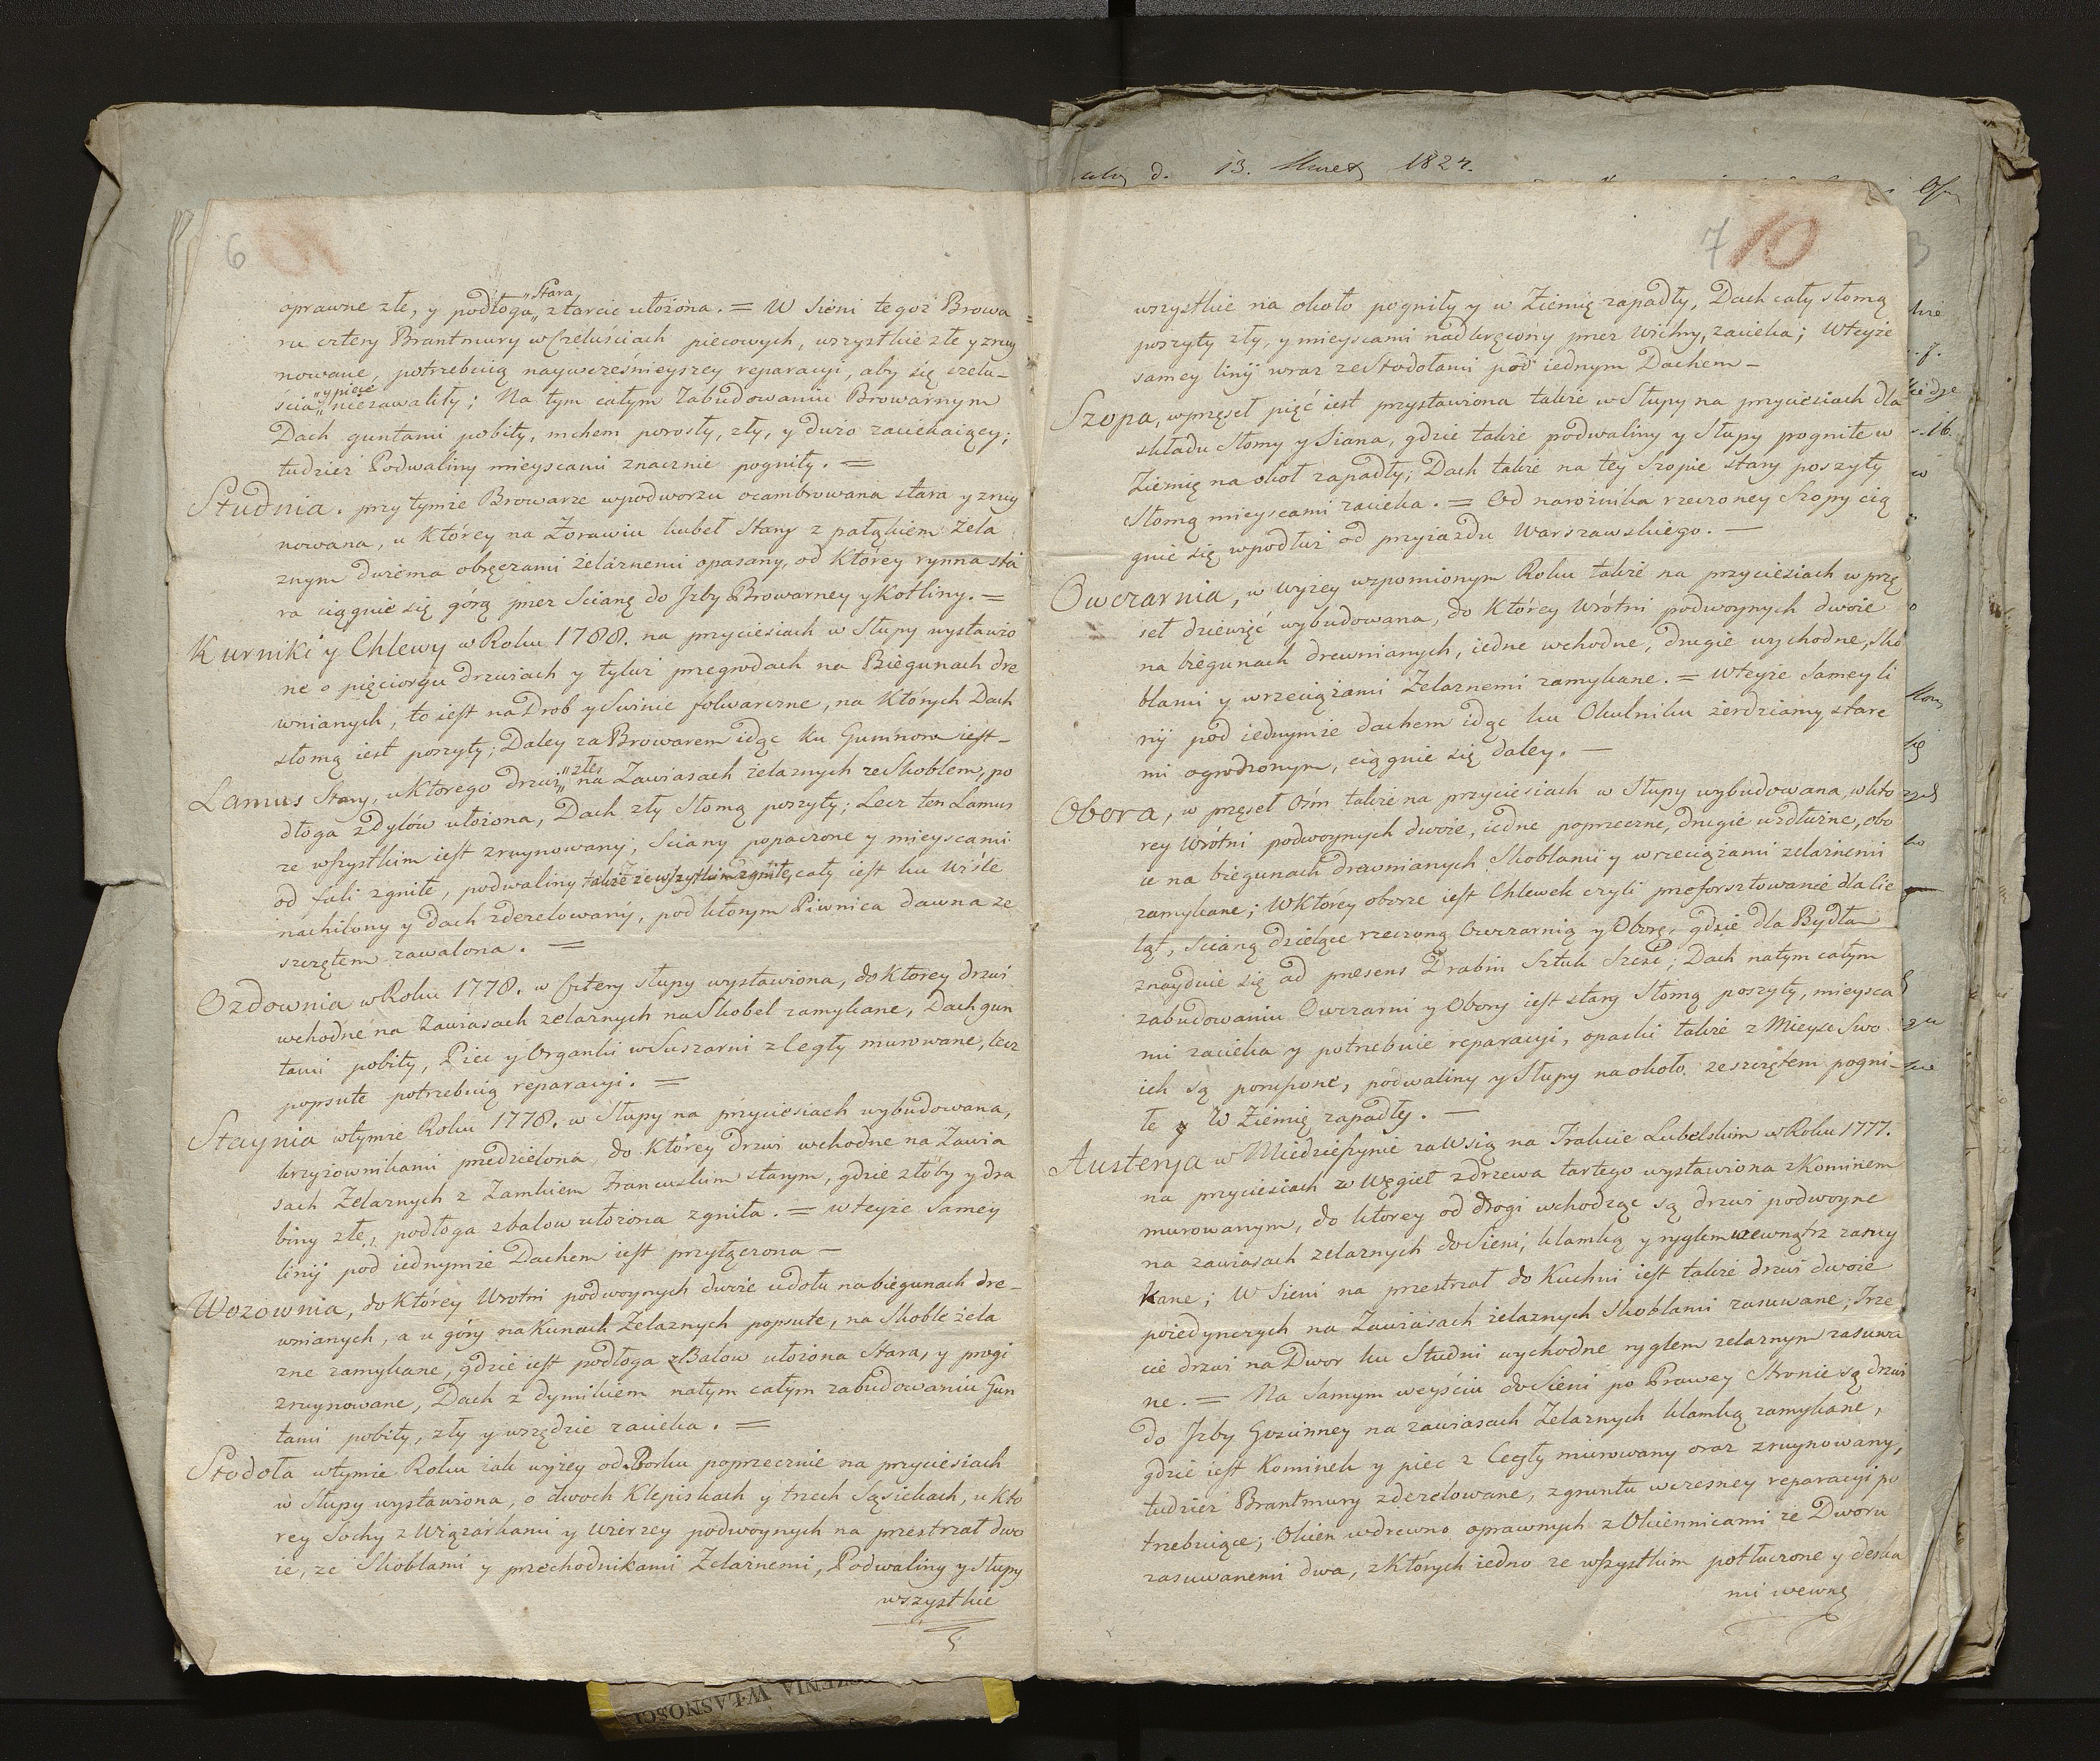 6
oprawne złe, y podłoga „Stara„ ztarcic ułożona. = W Sieni tegoż Browa
ru cztery Brantmury w Czeluściach piecowych, wszystkie złe y zruy
nowane, potrzebuią naywcześnieyszey reparacyi, aby się czelu-
ścia „y piece„ niezawaliły; Na tym całym Zabudowaniu Browarnym
Dach guntami pobity, mchem porosły, zły, y dużo zaciekaiący;
tudzież Podwaliny mieyscami znacznie pogniły. =
Studnia. przy tymże Browarze wpodworzu ocambrowana stara y zruy
nowana, u Którey na Żorawiu kubeł Stary z pałąkiem żela
znym dwiema obręczami żelaznemi opasany, od Którey rynna sta
ra ciągnie się górą przez Scianę do Jzby Browarney y Kotliny. =
Kurniki y Chlewy w Roku 1788. na przyciesiach w Słupy wystawio
ne o pięciorgu drzwiach y tyluż przegrodach na Biegunach dre
wnianych, to iest na Drob y Swinie folwarczne, na Których Dach
słomą iest poszyty; Daley za Browarem idąc Ku Gumnom iest-
Lamus Stary, u Którego drzwi „złe„ na Zawiasach żelaznych ze Skoblem, po
dłoga z Dylów ułożona, Dach zły Słomą poszyty; Lecz ten Lamus
ze wszystkim iest zruynowany, sciany popaczone y mieyscami
od fali zgniłe, podwaliny także ze wszystkim zgniłe, cały iest ku Wiśle
nachilony y Dach zdezelowany, pod ktorym Piwnica dawna ze
szczętem zawalona. =
Ozdownia w Roku 1778. w Cztery słupy wystawiona, do Ktorey drzwi
wchodne na Zawiasach zelaznych na Skobel zamykane, Dach gun
tami pobity, Piec y Organki w Suszarni z Cegły murowane, lecz
popsute potrzebuią reparacyi. =
Staynia wtymże Roku 1778. w Słupy na przyciesiach wybudowana,
krzyżownikami przedzielona, do Którey drzwi wchodne na Zawia
sach Zelaznych z Zamkiem Francuskim starym, gdzie złóby y dra
biny złe, podłoga z balow ułożona zgniła. = w teyże samey
linij pod iednymże Dachem iest przyłączona -
Wozownia, do Którey Wrotni podwoynych dwoie u dołu na biegunach dre-
wnianych, a u góry na Kunach Zelaznych popsute, na Skoble żela
zne zamykane, gdzie iest podłoga z Balow ułożona Stara, y progi
zruynowane, Dach z dymnikiem natym całym zabudowaniu Gun
tami pobity, zły y wszędzie zacieka. =
Stodoła wtymże Roku iak wyżey od Borku poprzecznie na przyciesiach
w słupy wystawiona, o dwoch Klepiskach y trzech Sąsiekach, u Kto
rey Sochy z Wiązarkami y Wierzey podwoynych na przestrzał dwo
ie, ze Skoblami y przechodnikami Żelaznemi, Podwaliny y słupy
wszystkie
13. 1827.
7 10
wszystkie na około pogniły y w Ziemię zapadły, Dach cały słomą
poszyty zły, y mieyscami nadkręcony przez wichry, zacieka; Wteyże
samey linij wraz ze Stodołami pod iednym Dachem -
Szopa, w pręseł pięć iest przystawiona także w Słupy na przyciesiach dla
składu Słomy y Siana, gdzie także podwaliny y Słupy pogniłe w
Ziemię na okoł zapadły; Dach także na tey Szopie stary poszyty
Słomą mieyscami zacieka. = Od narożnika rzeczoney Szopy cią
gnie się wpodłuż od przyiazdu Warszawskiego. -
Owczarnia, w wyżey wspomionym Roku także na przyciesiach w prę
seł dziewięć wybudowana, do Którey Wrótni podwoynych dwoie
na biegunach drewnianych, iedne wchodne, drugie wychodne, sko
blami y wrzeciążami Zelaznemi zamykane. = wteyże Samey li
nij pod iednymże dachem idąc ku Okulniku żerdziamy stare
mi ogrodzonym, ciągnie się daley. -
Obora, w pręseł Ośm także na przyciesiach w Słupy wybudowana, w kto
rey Wrótni podwoynych dwoie, iedne poprzeczne, drugie wzdłużne, obo
ie na biegunach drewnianych Skoblami y wrzeciążami zelaznemi
zamykane; W Którey oborze iest Chlewek czyli przeforsztowanie dla Cie
ląt, Scianą dzielące rzeczoną Owczarnią y Oborę, gdzie dla Bydła
znayduie się ad præsens Drabin Sztuk Sześć; Dach natym całym
zabudowaniu Owczarni y Obory iest stary Słomą poszyty, mieysca
mi zacieka y potrzebuie reparacyi, opaski także z Mieysc Swo
ich są poruszone, podwaliny y Słupy na około ze szczętem pogni-
łe y W Ziemię zapadły. -
Austerya w Miedzieszynie za Wsią na Trakcie Lubelskim w Roku 1777.
na przyciesiach w Węgieł z drzewa tartego wystawiona z Kominem
murowanym, do ktorey od drogi wchodząc są drzwi podwoyne
na zawiasach zelaznych do Sieni, klamką y ryglem wewnątrz zamy
kane; W Sieni na przestrzał do Kuchni iest także drzwi dwoie
poiedynczych na Zawiasach żelaznych Skoblami zasuwane; Trze
cie drzwi na Dwor ku Studni wychodne ryglem zelaznym zasuwa
ne. = Na samym weyściu do Sieni po Prawey Stronie są drzwi
do Jzby Gościnney na zawiasach Zelaznych klamką zamykane,
gdzie iest Kominek y piec z Cegły murowany oraz zruynowany;
tudzież Brantmury zdezelowane, z gruntu wczesney reparacyi po
trzebuiące; Okien w drewno oprawnych z Okiennicami ze Dworu
zasuwanemi dwa, z Których iedno ze wszystkim potłuczone y deska
mi wewną
WŁASNOŚCI